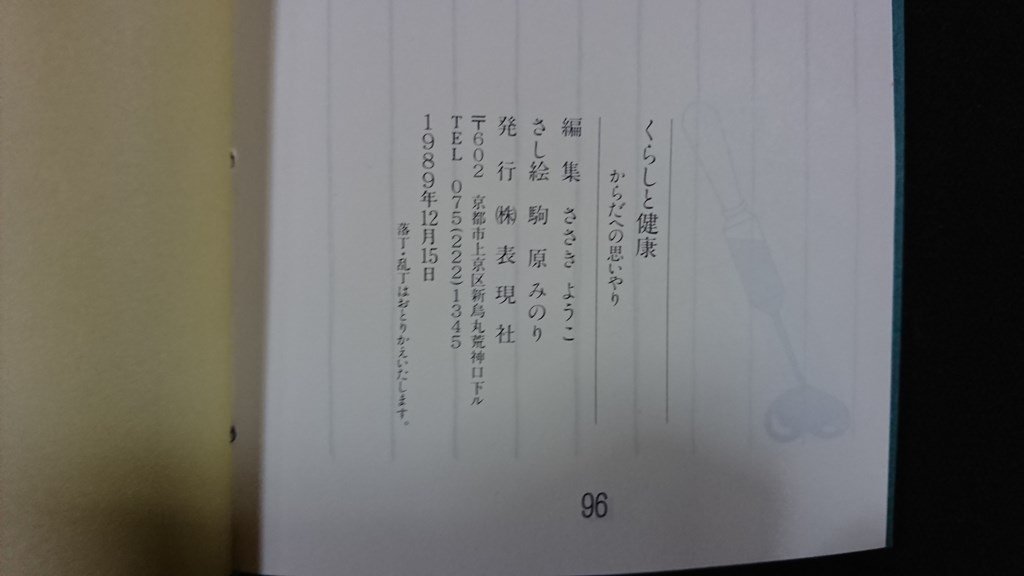 くらしと健康
からだへの思いやり
編集 ささき ようこ
さし絵 駒原みのり
発行 ㈱表現社
〒602 京都市上京区新烏丸荒神口下ル
TEL 075(222)1345
1989年12月15日
落丁・乱丁はおとりかえいたします。
96